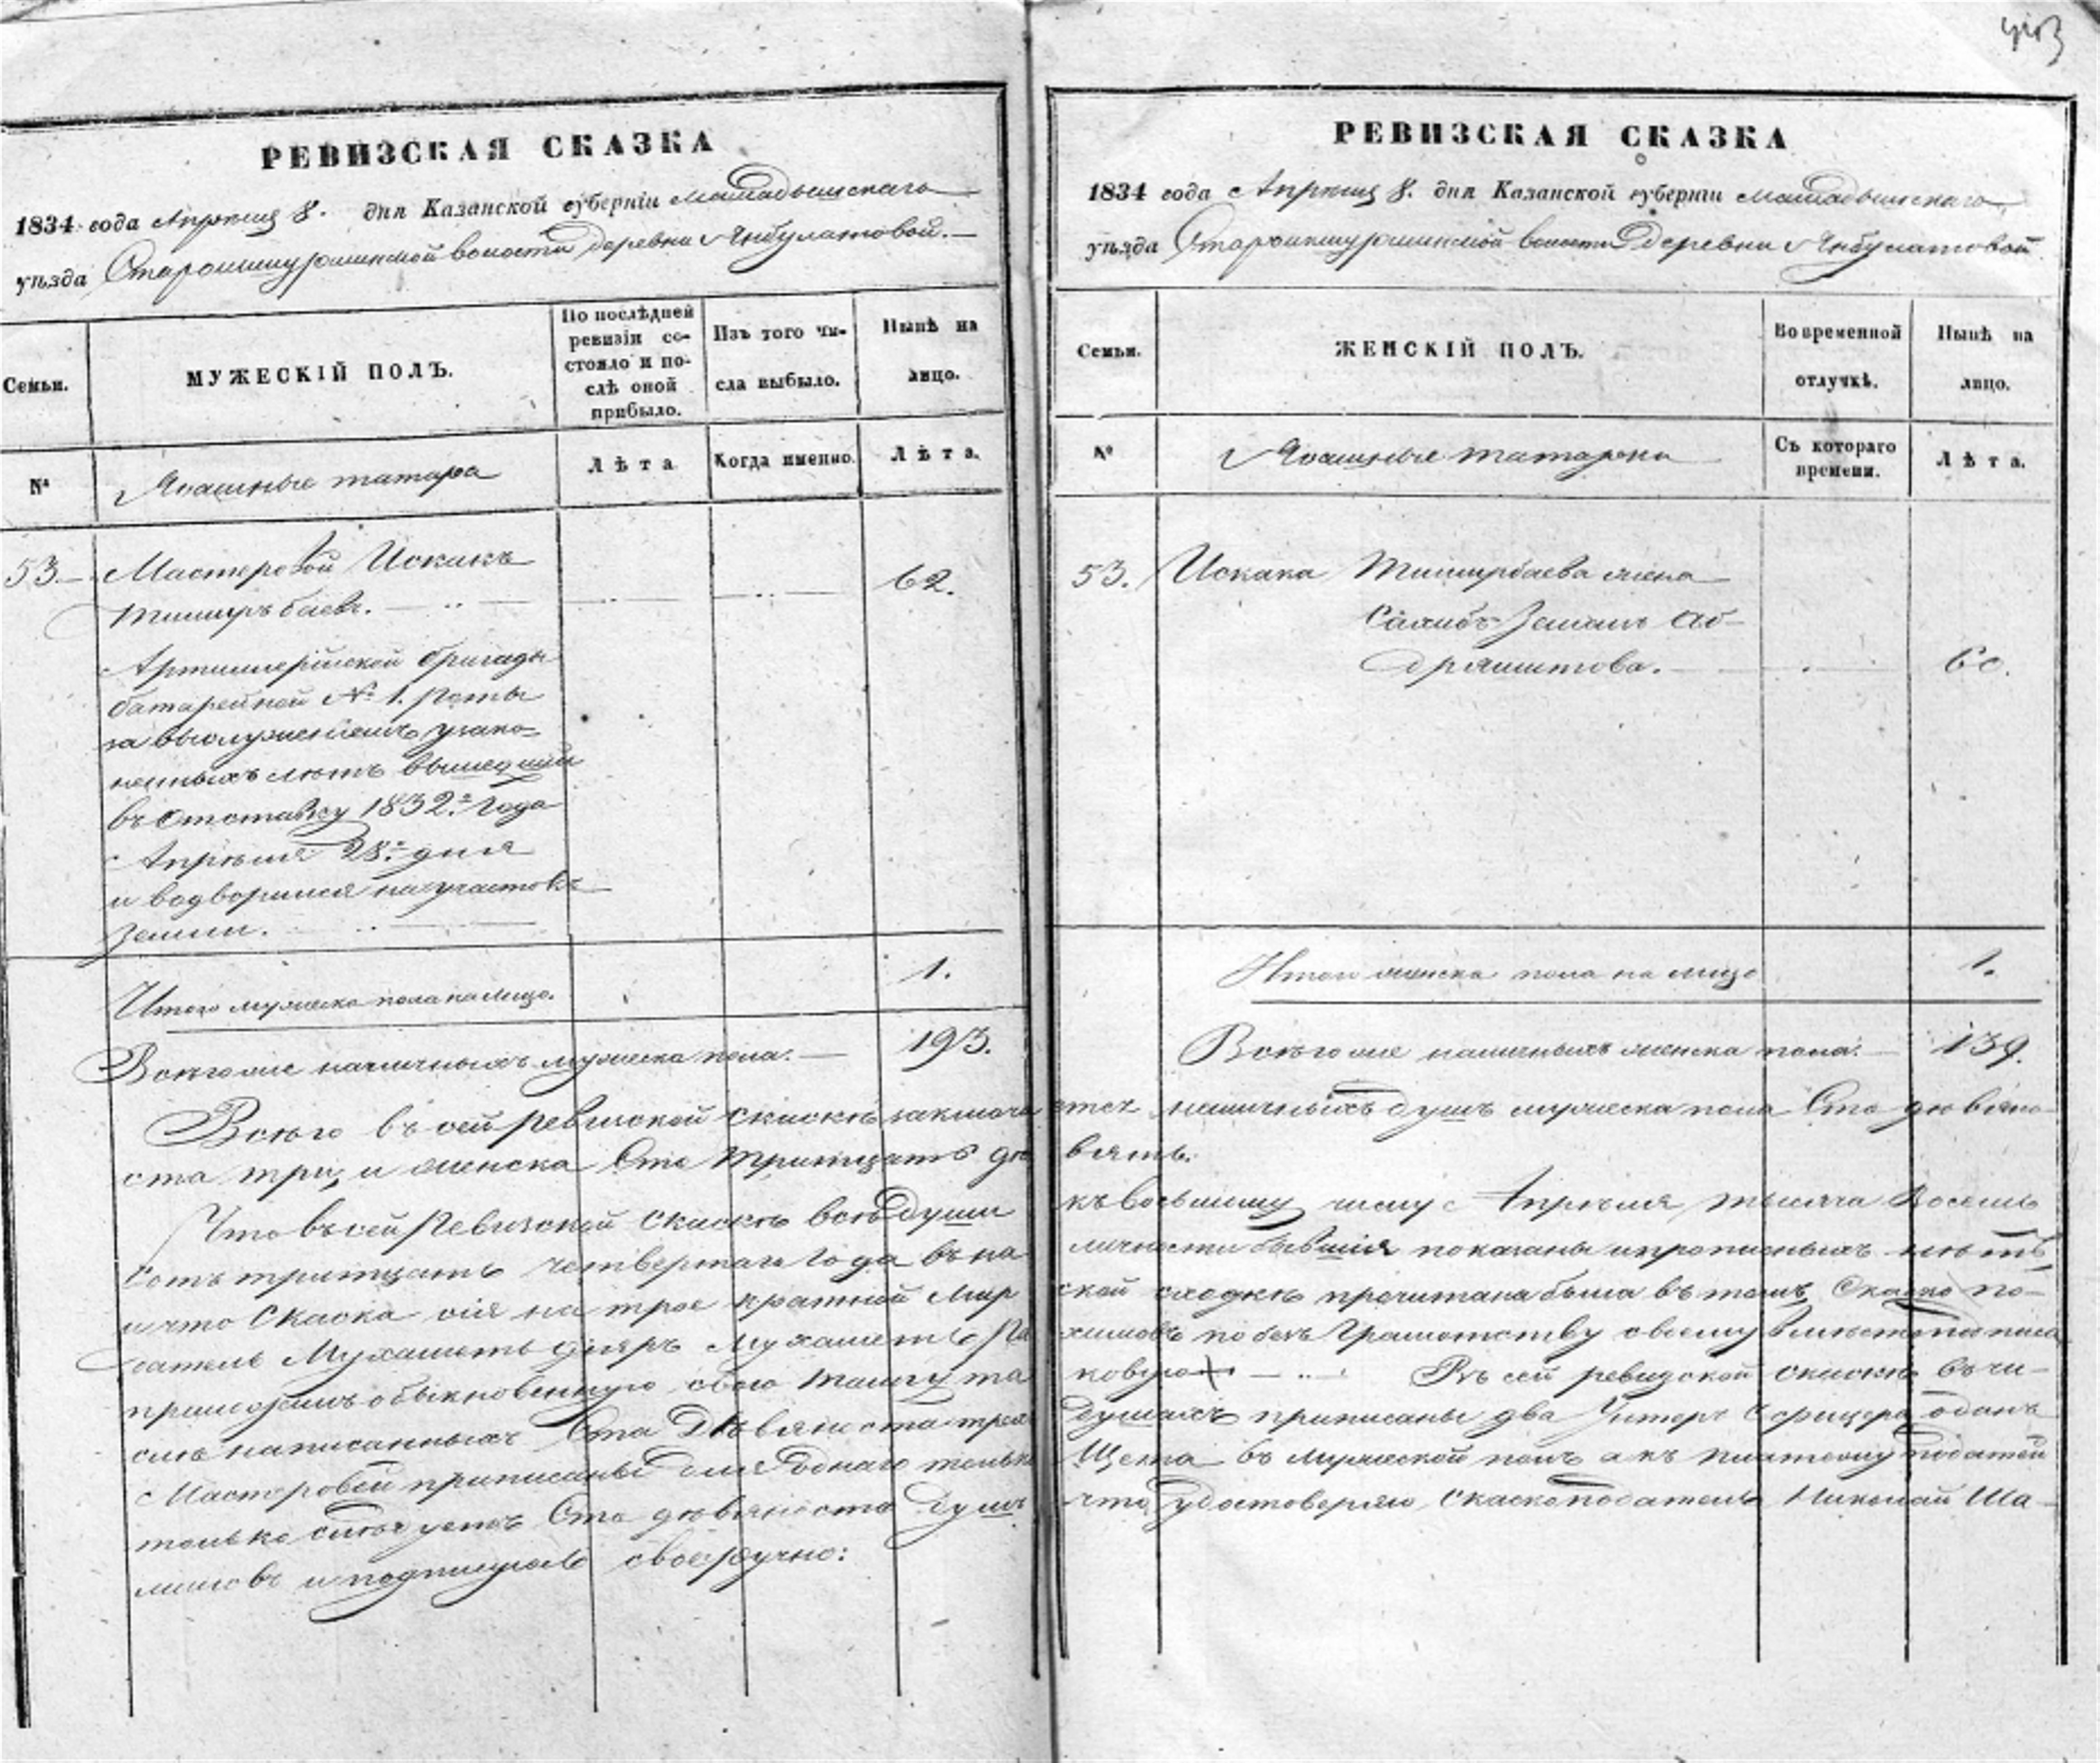 РЕВИЗСКАЯ СКАЗКА
1834 года Апреля 8. дня Казанской губерніи Мамадышскаго
уѣзда волости деревни Янбулатовой.
Семьи.
МУЖЕСКІЙ ПОЛЪ.
По послѣдней ревизіи состояло и послѣ оной прибыло.
Изъ того числа выбыло.
Нынѣ на лицо.
№
Ясашные татара
Лѣта
Когда именно.
Лѣта.
53. Мастеровой Искакъ
Тимирбаевъ. 62.
Артиллерійской бригады
батарейной № 1. роты
за выслуженіемъ узако-
ненныхъ лѣтъ вышедший
въ отставку 1832. года
Апрѣля 28. дня
и водворился на участокъ
земли.
Итого мужеска пола на лицо. 1.
Всего же наличныхъ мужеска пола. 193.
РЕВИЗСКАЯ СКАЗКА
1834 года Апреля 8. дня Казанской губерніи Мамадышскаго
уѣзда волости деревни Янбулатовой
Семьи.
ЖЕНСКІЙ ПОЛЪ.
Во временной отлучкѣ.
Нынѣ на лицо.
№
Ясашные татарки
Съ котораго времени.
Лѣта.
53. Искака Тимирбаева жена
60.
Итого женска пола на лицо 1.
Всего же наличныхъ женска пола. 139.
Всего въ сей ревизской скаскѣ заключается наличныхъ душъ мужеска пола Сто девяно-
ста три, и женска Сто тритцать девять.
Что въ сей Ревизской скаскѣ всѣ души къ восьмому числу Апрѣля тысяча восемь
сотъ тритцать четвертаго года въ наличности бывшія показаны и прописныхъ нѣтъ,
и что Скаска сія на трое кратной Мирской сходкѣ прочитана была въ томъ Скаско по-
датель по безъ грамотству своему вместо подписа
приложилъ обыкновенную свою тамгу таковую. Въ сей ревизской скаскѣ въ чи-
слѣ написанныхъ Ста Девяноста трехъ душахъ приписаны два Унтеръ Офицера один
Мастеровой приписаны для однаго только Щета въ мужеской полъ а къ платежу податей
только следуетъ Сто девяносто Душъ что удостоверяю Скаскоподатель Николай
и подписуюсь своеручно: